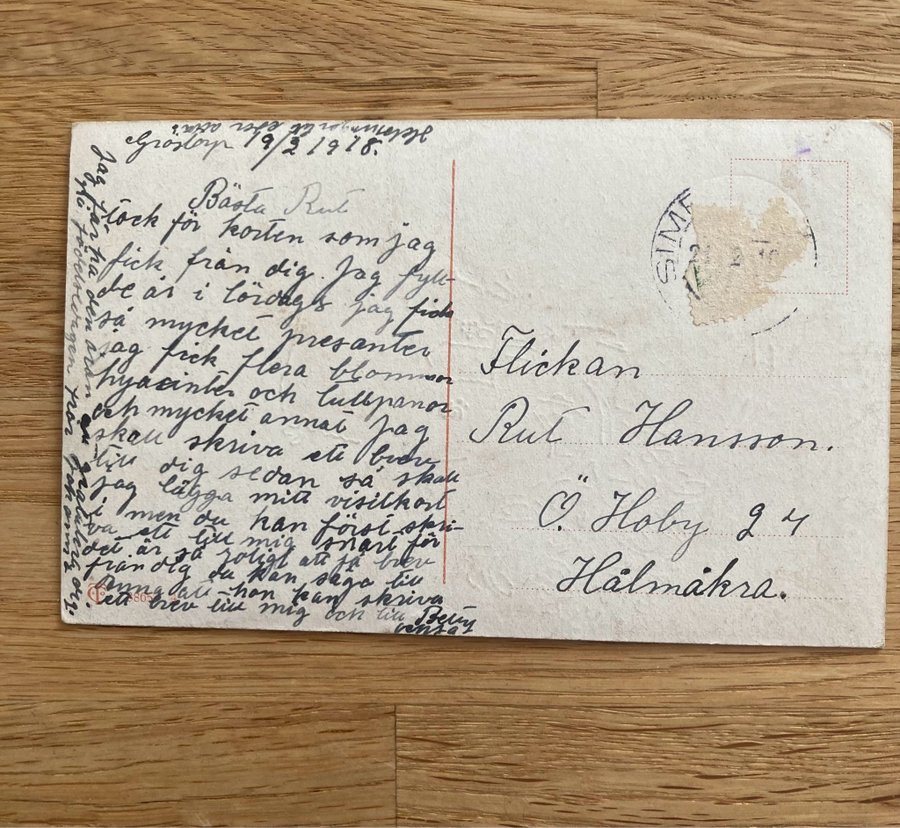 19/2 1918.
Bästa Rut
tack för korten som jag
fick från dig. Jag fyll-
de år i lördags jag fick
så mycket presanter
jag fick flera blommor
hyacinter och tullpanor
och mycket annat Jag
skall skriva ett brev
till dig sedan så skall
jag lägga mitt visitkort
i men du kan först skri-
va ett till mig snart för
det är så roligt att få brev
från dig du kan säga till
Anna att hon kan skriva
ett brev till mig och till Betty
Jag får ha den äran att gratulera dig
på födelsedagen
SIM
Flickan
Rut Hansson.
Ö. Hoby 24
Hålmåkra.